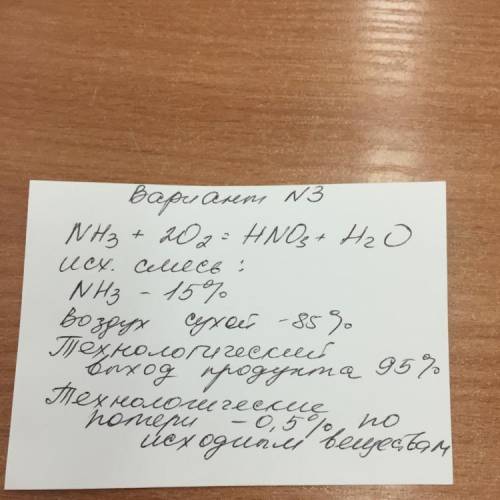 Вариант N3
NH3 + 2O2 = HNO3 + H2O
исх. смесь:
NH3 - 15%
Воздух сухой - 85%
Технологический
выход продукта 95%
Технологические
потери - 0,5% по
исходным веществам